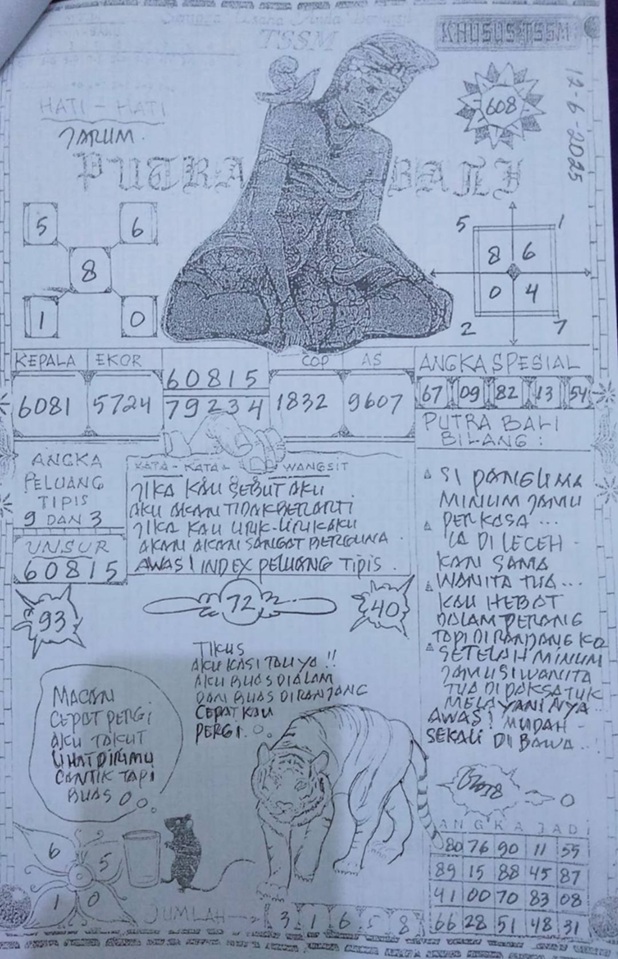 TSSM
KHUSUS TSSM
HATI - HATI
JARUM.
608
12-6-2025
PUTRA BALI
5 6
8
1 0
5 1
8 6
0 4
2 7
KEPALA EKOR COP AS
6081 5724 60815 1832 9607
79234
ANGKA SPESIAL
67 09 82 13 54
ANGKA
PELUANG
TIPIS
9 DAN 3
UNSUR
60815
KATA-KATA WANGSIT
JIKA KAU SEBUT AKU
AKU AKAN TIDAK BERARTI
JIKA KAU LIRIK-LIRIK AKU
AKAN AKAN SANGAT BERGUNA
AWAS! INDEX PELUANG TIPIS.
PUTRA BALI
BILANG:
SI PANGLIMA
MINUM JAMU
PERKASA...
IA DI LECEH-
KAN SAMA
WANITA TUA...
KAU HEBAT
DALAM PERANG
TAPI DI RANJANG KO
SETELAH MINUM
JAMU SI WANITA
TUA DI PAKSA TUK
MELAYANI NYA
AWAS! MUDAH-
SEKALI DI BAWA..
93
72
40
MACAN
CEPAT PERGI
AKU TAKUT
LIHAT DIRIMU
CANTIK TAPI
BUAS
TIKUS
AKU KASI TAU YA!!
AKU BUAS DI ALAM
DAN BUAS DI RANJANG
CEPAT KAU
PERGI.
6 5
1 0
JUMLAH
3 1 6 5 8
ANGKA JADI
80 76 90 11 55
89 15 88 45 87
41 00 70 83 08
66 28 51 48 31